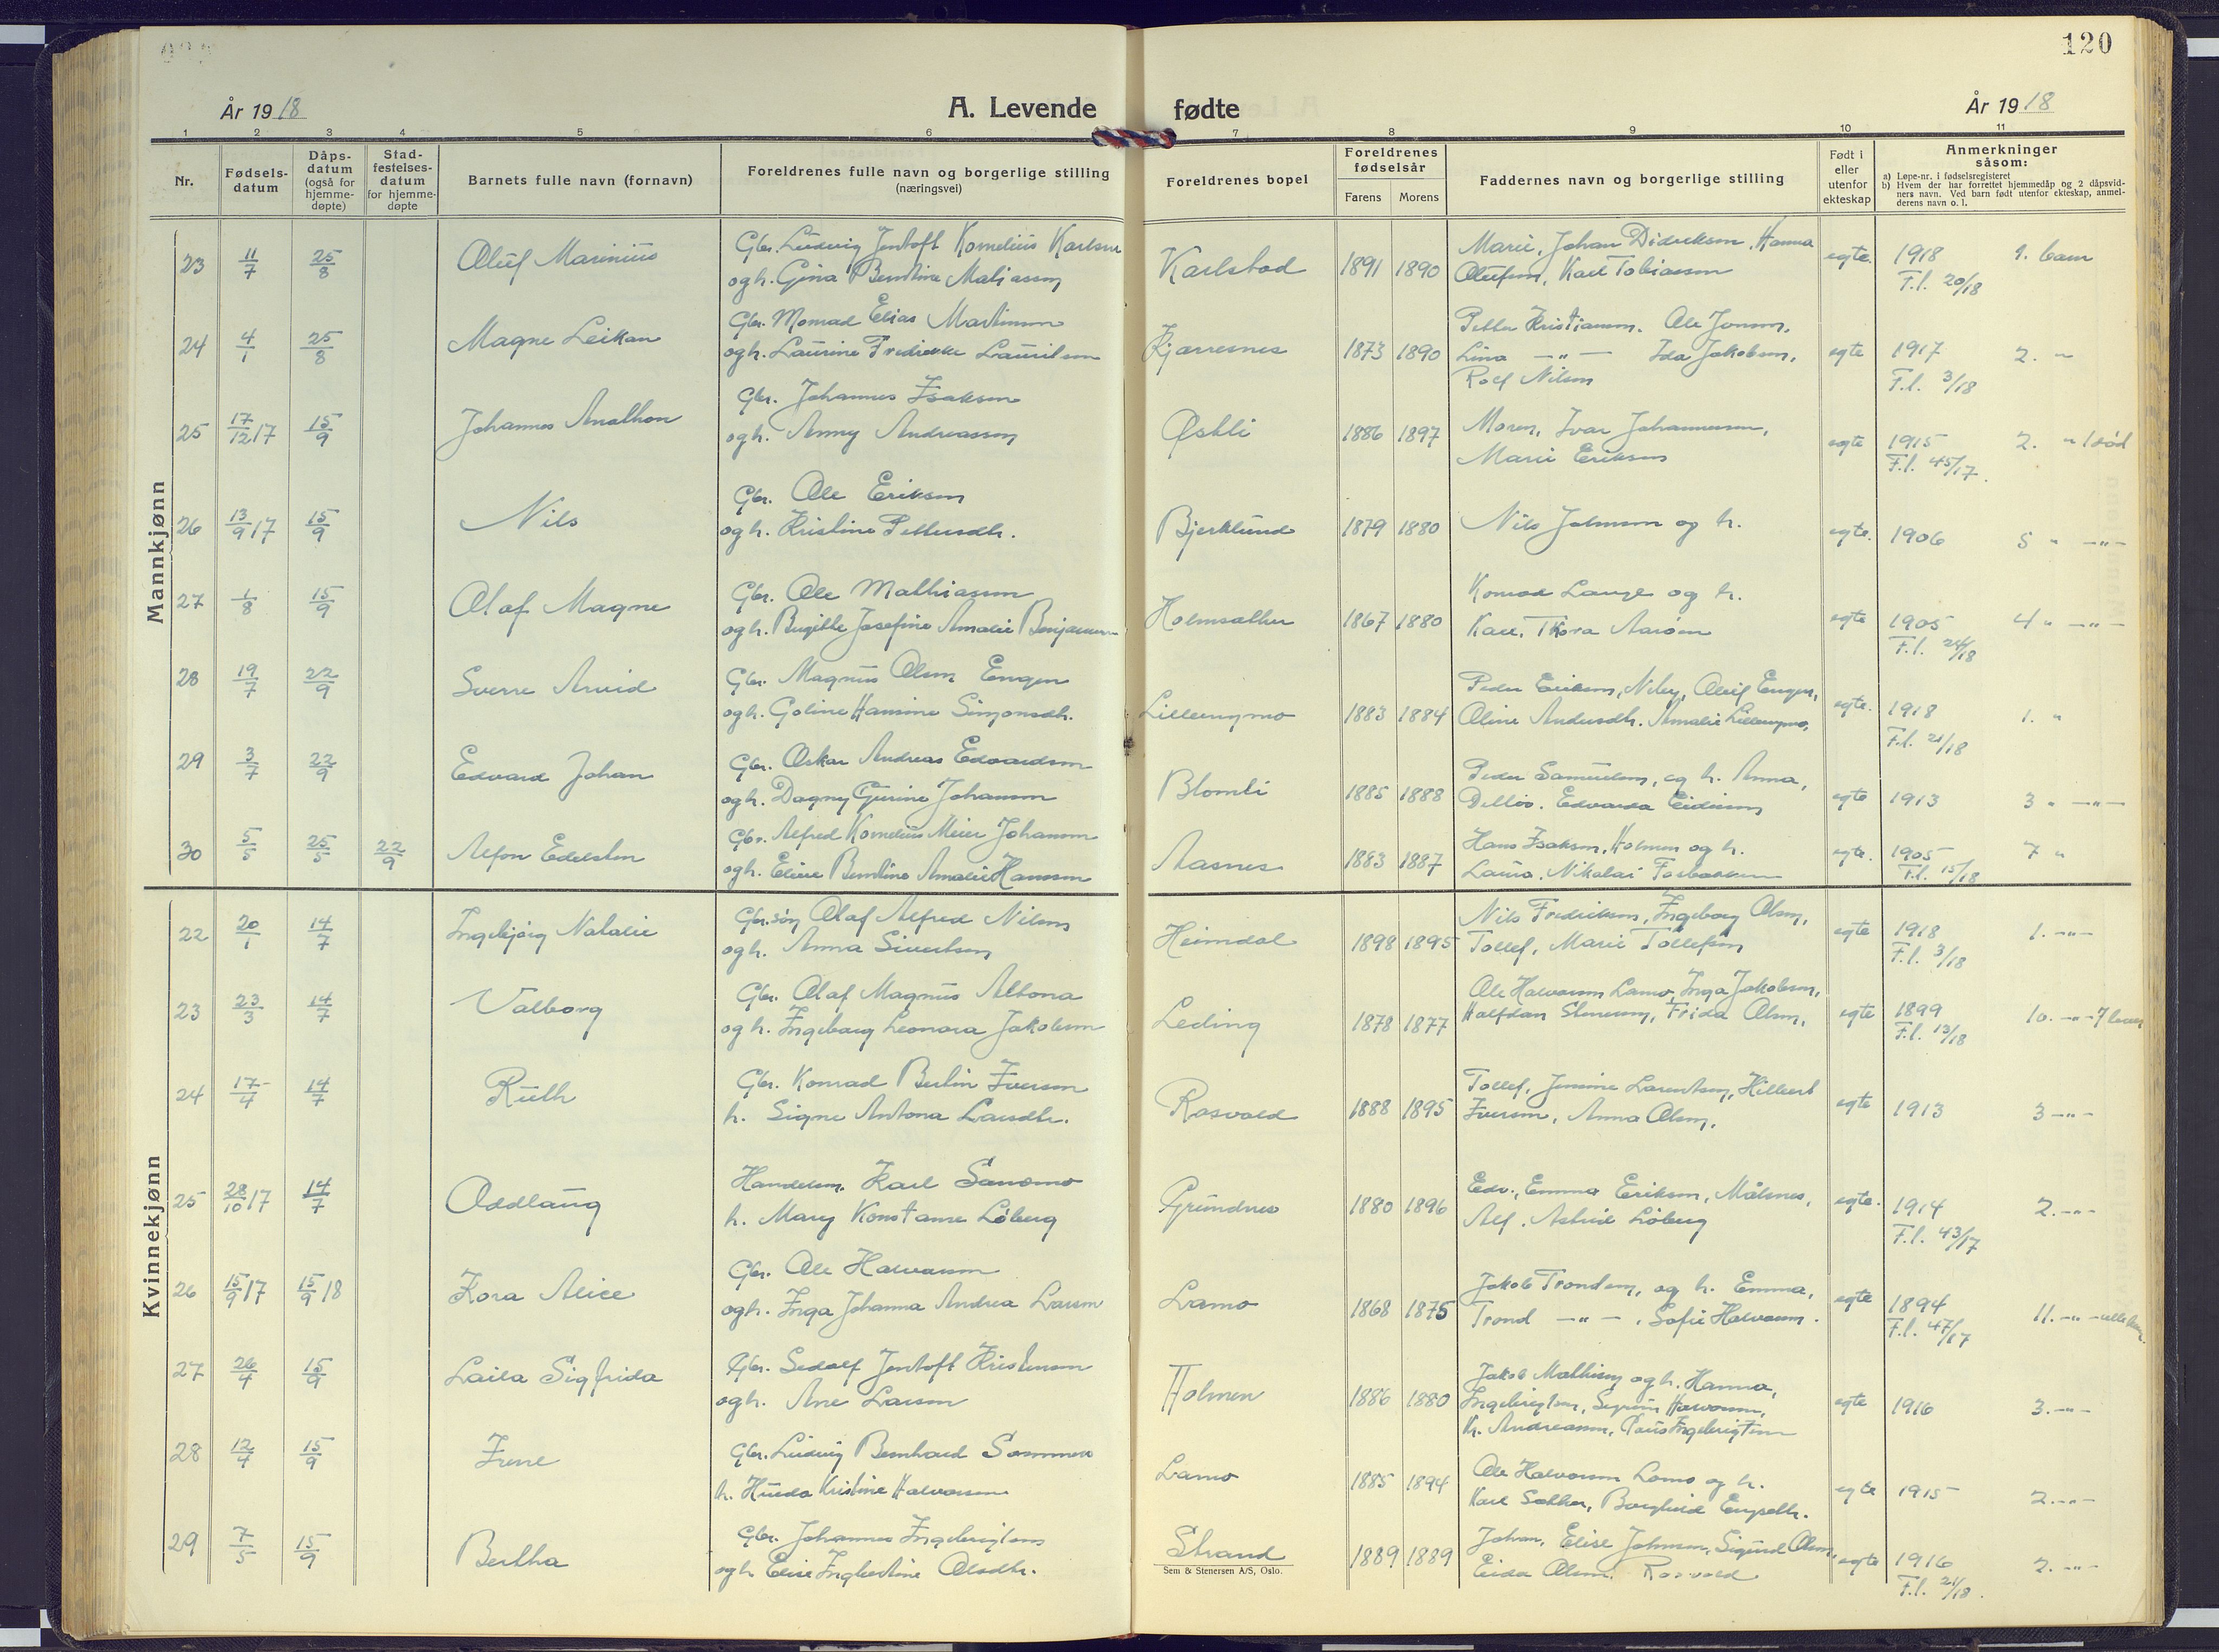 120
År 1918
A. Levende fødte
År 1918
1 2 3 4 5 6 7 8 9 10 11
Nr.
Fødsels-
datum
Dåps-
datum
(også for
hjemme-
døpte)
Stad-
festelses-
datum
for hjemme-
døpte
Barnets fulle navn (fornavn)
Foreldrenes fulle navn og borgerlige stilling
(næringsvei)
Foreldrenes bopel
Foreldrenes
fødselsår
Farens Morens
Faddernes navn og borgerlige stilling
Født i
eller
utenfor
ekteskap
Anmerkninger
såsom:
a) Løpe-nr. i fødselsregisteret
b) Hvem der har forrettet hjemmedåp og 2 dåpsvid-
ners navn. Ved barn født utenfor ekteskap, anmel-
derens navn o. l.
Mannkjønn
23 11/7 25/8 Oluf Marinius
Gbr. Ludvig Jentoft Kornelius Karlsen
og h. Gina Bentine Matiassen
Karlstad 1891 1890
Marie, Johan Didriksen, Hanna
Olufsen, Karl Tobiassen
egte. 1918 1. barn
F.l. 20/18
24 4/1 25/8 Magne Leikan
Gbr. Monrad Elias Martinsen
og h. Laurine Fredrikke Lauritsen
Kjærresnes 1873 1890
Petter Kristiansen. Ole Jonsen,
Lina —"— Ida Jakobsen,
Rolf Nilsen
egte 1917 2. "
F.l. 3/18
25 17/12 17 15/9 Johannes Anathon
Gbr. Johannes Isaksen
og h. Anny Andreassen
Østli 1886 1897
Moren, Ivar Johannessen,
Marie Eriksen
egte 1915 2. " 1 død
F.l. 45/17.
26 13/9 17 15/9 Nils
Gbr. Ole Eriksen
og h. Kristine Pettersdtr.
Bjerklund 1879 1880
Nils Johnsen og h.
egte. 1906 5 " —"—
27 1/8 15/9 Olaf Magne
Gbr. Ole Mathiassen
og h. Birgitte Josefine Amalie Benjaminsen
Holmsæther 1867 1880
Konrad Lange og h.
Karl, Thora Aarøen
egte 1905 4 " —"—
F.l. 24/18
28 19/7 22/9 Sverre Arvid
Gbr. Magnus Olsen Engen
og h. Goline Hansine Simonsdtr.
Lillengmo 1883 1884
Peder Eriksen, Niby, Oluf Engen,
Oline Andersdtr. Amalie Lillengmo,
egte. 1918 1. "
F.l. 21/18
29 3/7 22/9 Edvard Johan
Gbr. Oskar Andreas Edvardsen
og h. Dagny Gurine Johansen
Blomli 1885 1888
Peder Samuelsen, og h. Anna,
Edvarda Eidissen
egte 1913 3 " —"—
30 5/5 25/5 22/9 Alfon Edelsten
Gbr. Alfred Kornelius Meier Johansen
og h. Elise Bentine Amalie Hanssen
Aasnes 1883 1887
Hans Isaksen, Holmen og h.
Laura. Nikolai Fosbakken
egte. 1905 7 "
F.l. 15/18
Kvinnekjønn
22 20/1 14/7 Ingebjørg Natalie
Gbr.søn Olaf Alfred Nilsen
og h. Anna Sivertsen
Heimdal 1898 1895
Nils Fredriksen, Ingeborg Olsen,
Tollef, Marie Tollefsen
egte 1918 1. —"—
F.l. 3/18
23 23/3 14/7 Valborg
Gbr. Olaf Magnus Altona
og h. Ingeborg Leonora Jakobsen
Leding 1878 1877
Ole Halvorsen Lamo, Inga Jakobsen,
Halfdan Stenersen, Frida Olsen,
egte 1899 10. —"—
F.l. 13/18
24 17/4 14/7 Ruth
Gbr. Konrad Berlin Iversen
h. Signe Antona Larsdtr.
Rosvold 1888 1895
Tollef, Jensine Larentsen, Hilbert
Iversen, Anna Olsen.
egte 1913 3 —"—
25 28/10 17 14/7 Oddlaug
Handelsm. Karl Sanomo
h. Mary Konstanse Løberg
Grundnes 1880 1896
Edv., Emma Eriksen, Målsnes,
Alf. Astrid Løberg
egte. 1914 2. —"—
F.l. 43/17
26 15/9 17 15/9 18 Kora Alice
Gbr. Ole Halvorsen
og h. Inga Johanna Andrea Larsen
Lamo 1868 1875
Jakob Trondsen, og h. Emma,
Trond —"—, Sofie Halvorsen.
egte 1894 11. —"—
F.l. 47/17
27 26/4 15/9 Laila Sigfrida
Gbr. Sedolf Jentoft Kristensen
og h. Ane Larsen
Holmen 1886 1880
Jakob Mathisen og h. Hanna,
Ingebrigtsen, Halvorsen,
Kr. Andreassen, Paus Ingebrigtsen
egte 1916 3. —"—
28 12/4 15/9 Irene
Gbr. Ludvig Bernhard Sommero
h. Hulda Kristine Halvorsen
Lamo 1885 1894
Ole Halvorsen Lamo og h.
Karl Sæther, Borghild
egte 1915 2. —"—
29 7/5 15/9 Bertha
Gbr. Johannes Ingebrigtsen
og h. Elise Ingbertine Olsdtr.
Strand 1889 1889
Johan, Elise Johnsen, Sigurd Olsen,
Eida Olsen. Rosvold
egte 1916 2. —"—
F.l. 21/18.
Sem & Stenersen A/S, Oslo.